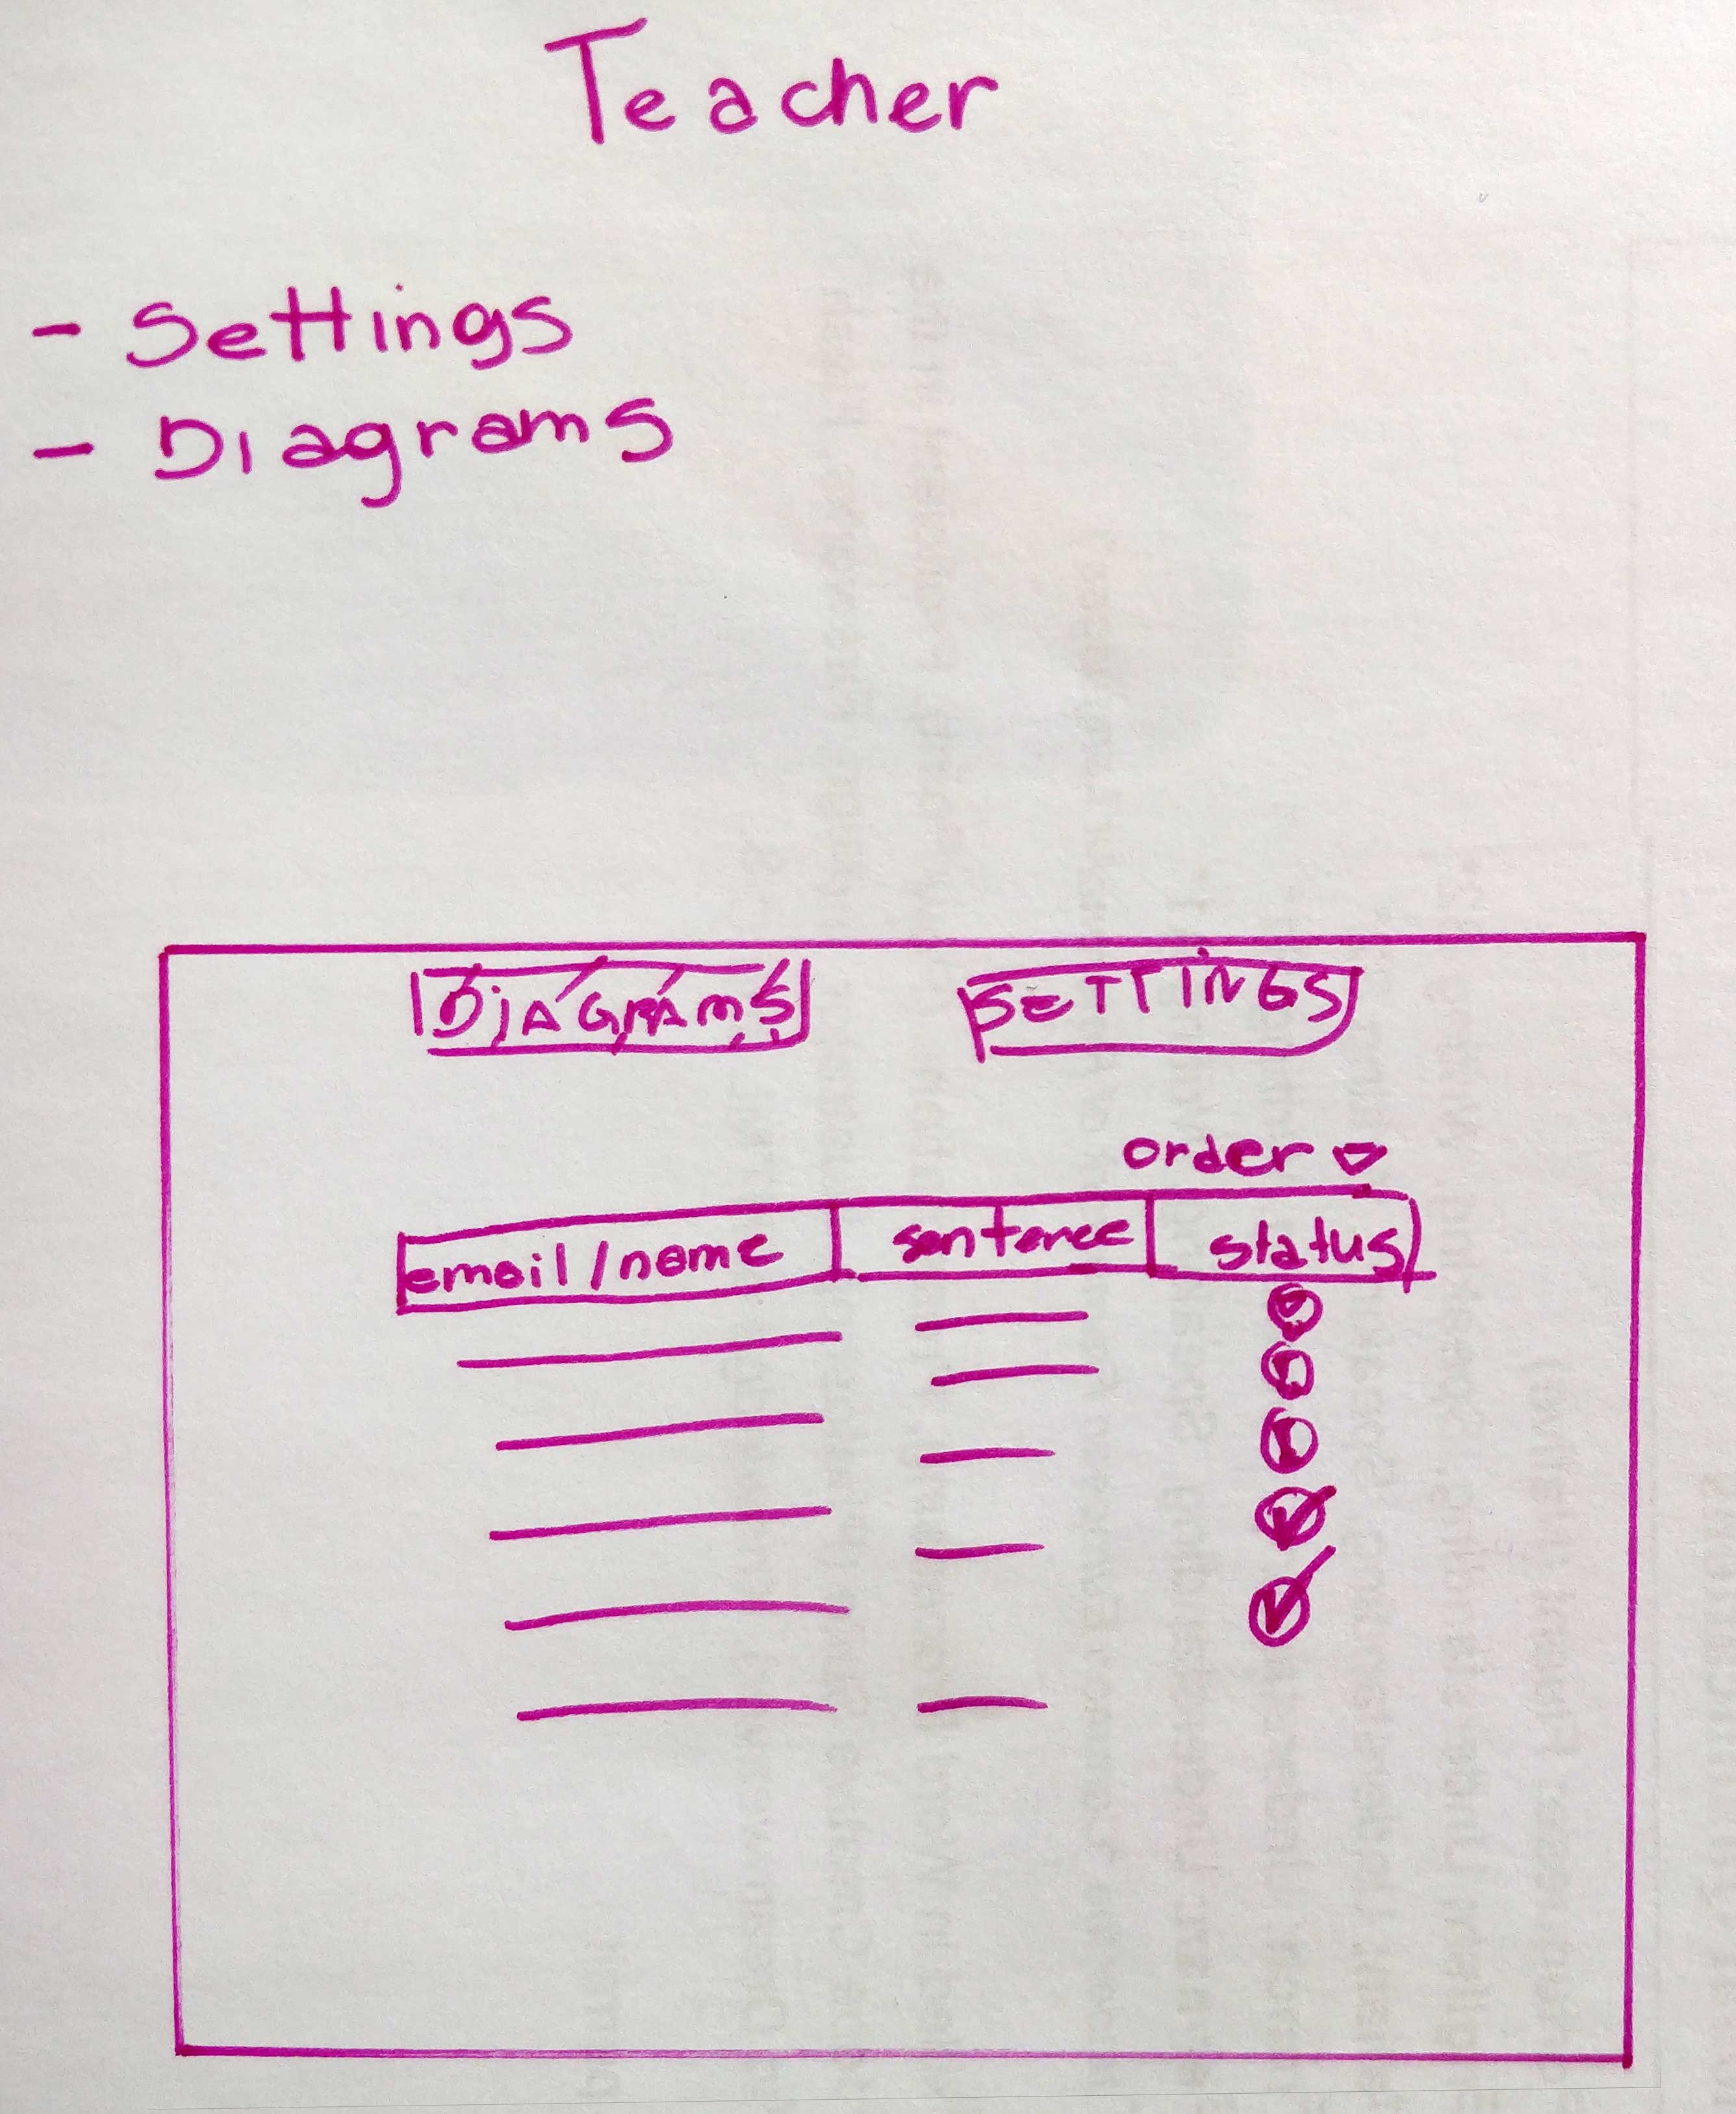 Teacher
- Settings
- Diagrams
DiAGRAMS SETTINGS
order
email/name sentence status